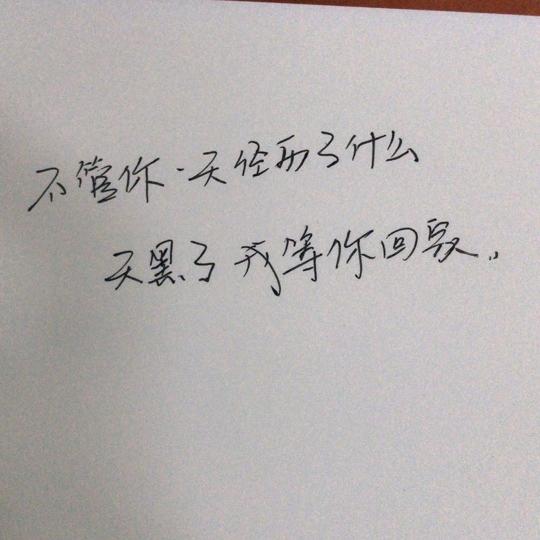 不管你一天经历了什么
天黑了 我等你回家..